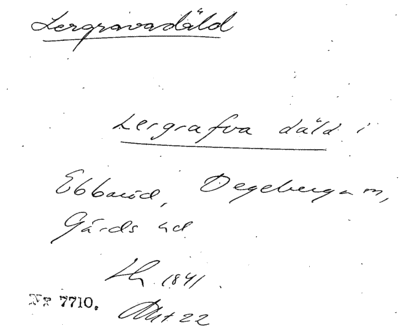 Lergravadäld
Lergrafva däld i
Ebbaröd, Degeberga sn,
Gärds hd
Lh 1841.
Nr 7710.
Akt 22